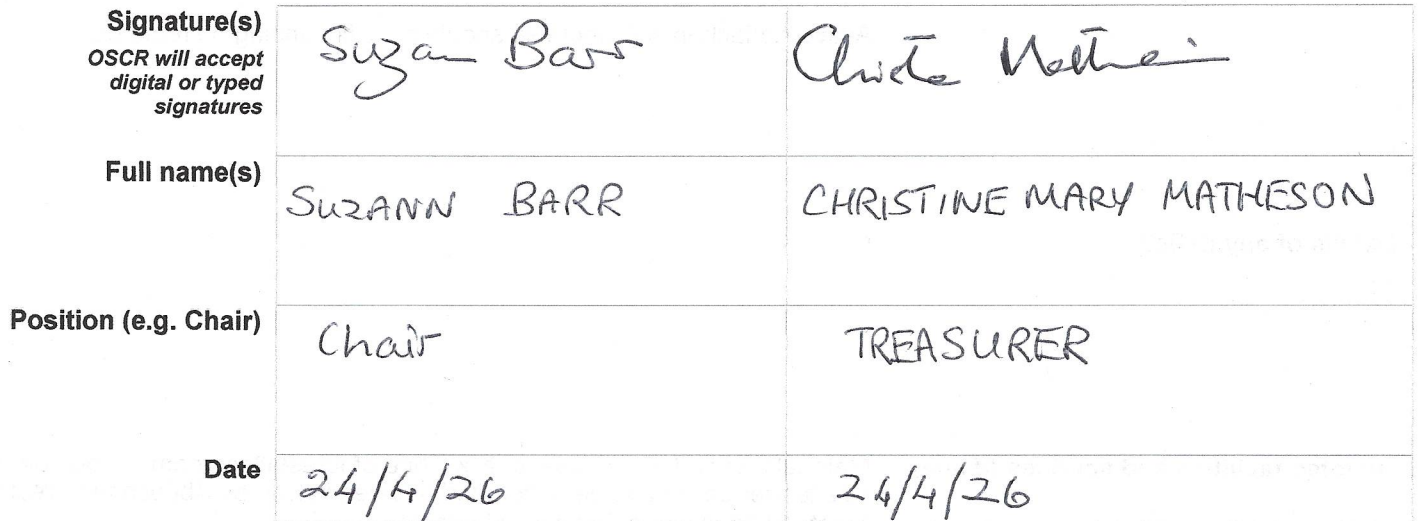 Signature(s)
OSCR will accept
digital or typed
signatures
Suzann Barr
Full name(s)
SUZANN BARR
CHRISTINE MARY MATHESON
Position (e.g. Chair)
Chair
TREASURER
Date
24/4/26
24/4/26